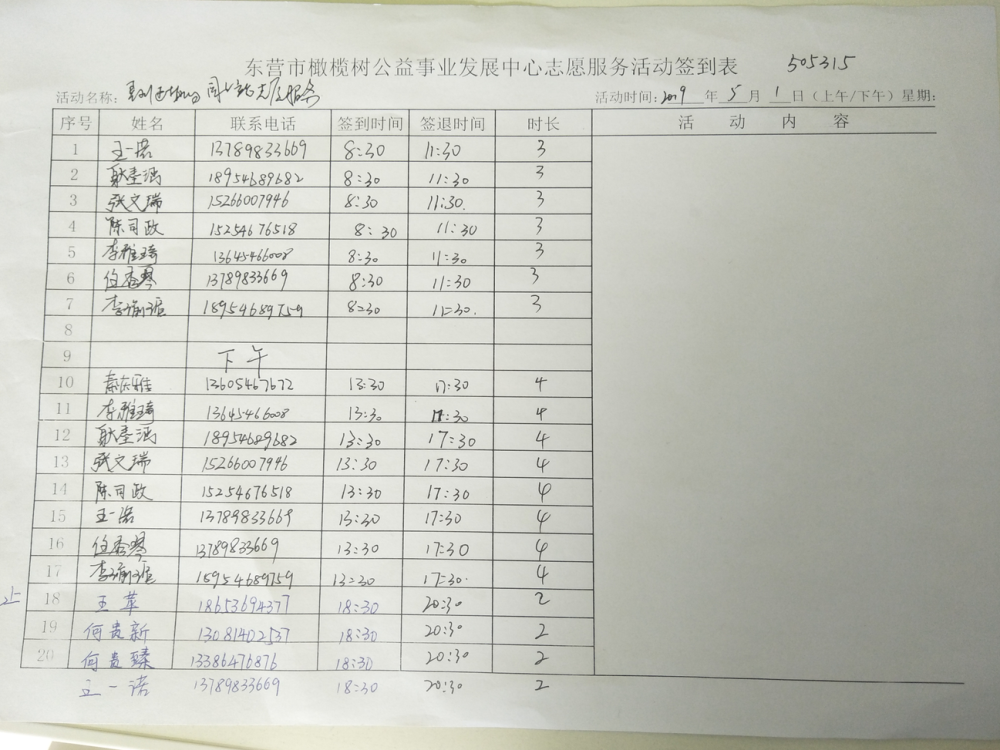 东营市橄榄树公益事业发展中心志愿服务活动签到表 505315
活动名称: 志愿服务 活动时间:2019年5月1日（上午/下午）星期:
序号 姓名 联系电话 签到时间 签退时间 时长 活动内容
1 王一诺 13789833669 8:30 11:30 3
2 耿 涵 18954689682 8:30 11:30 3
3 张文瑞 15266007946 8:30 11:30. 3
4 陈司政 15254676518 8:30 11:30 3
5 李雅琦 13645466008 8:30 11:30 3
6 13789833669 8:30 11:30 3
7 李 18954689759 8:30 11:30. 3
8
9 下午
10 雅 13605467672 13:30 17:30 4
11 李雅琦 13645466008 13:30 17:30 4
12 耿 涵 18954689682 13:30 17:30 4
13 张文瑞 15266007946 13:30 17:30 4
14 陈司政 15254676518 13:30 17:30 4
15 王一诺 13789833669 13:30 17:30 4
16 13789833669 13:30 17:30 4
17 李 15954689759 13:30 17:30. 4
18 王苹 18653694377 18:30 20:30 2
19 何贵新 13081402537 18:30 20:30 2
20 何贵臻 13386476876 18:30 20:30 2
王一诺 13789833669 18:30 20:30 2